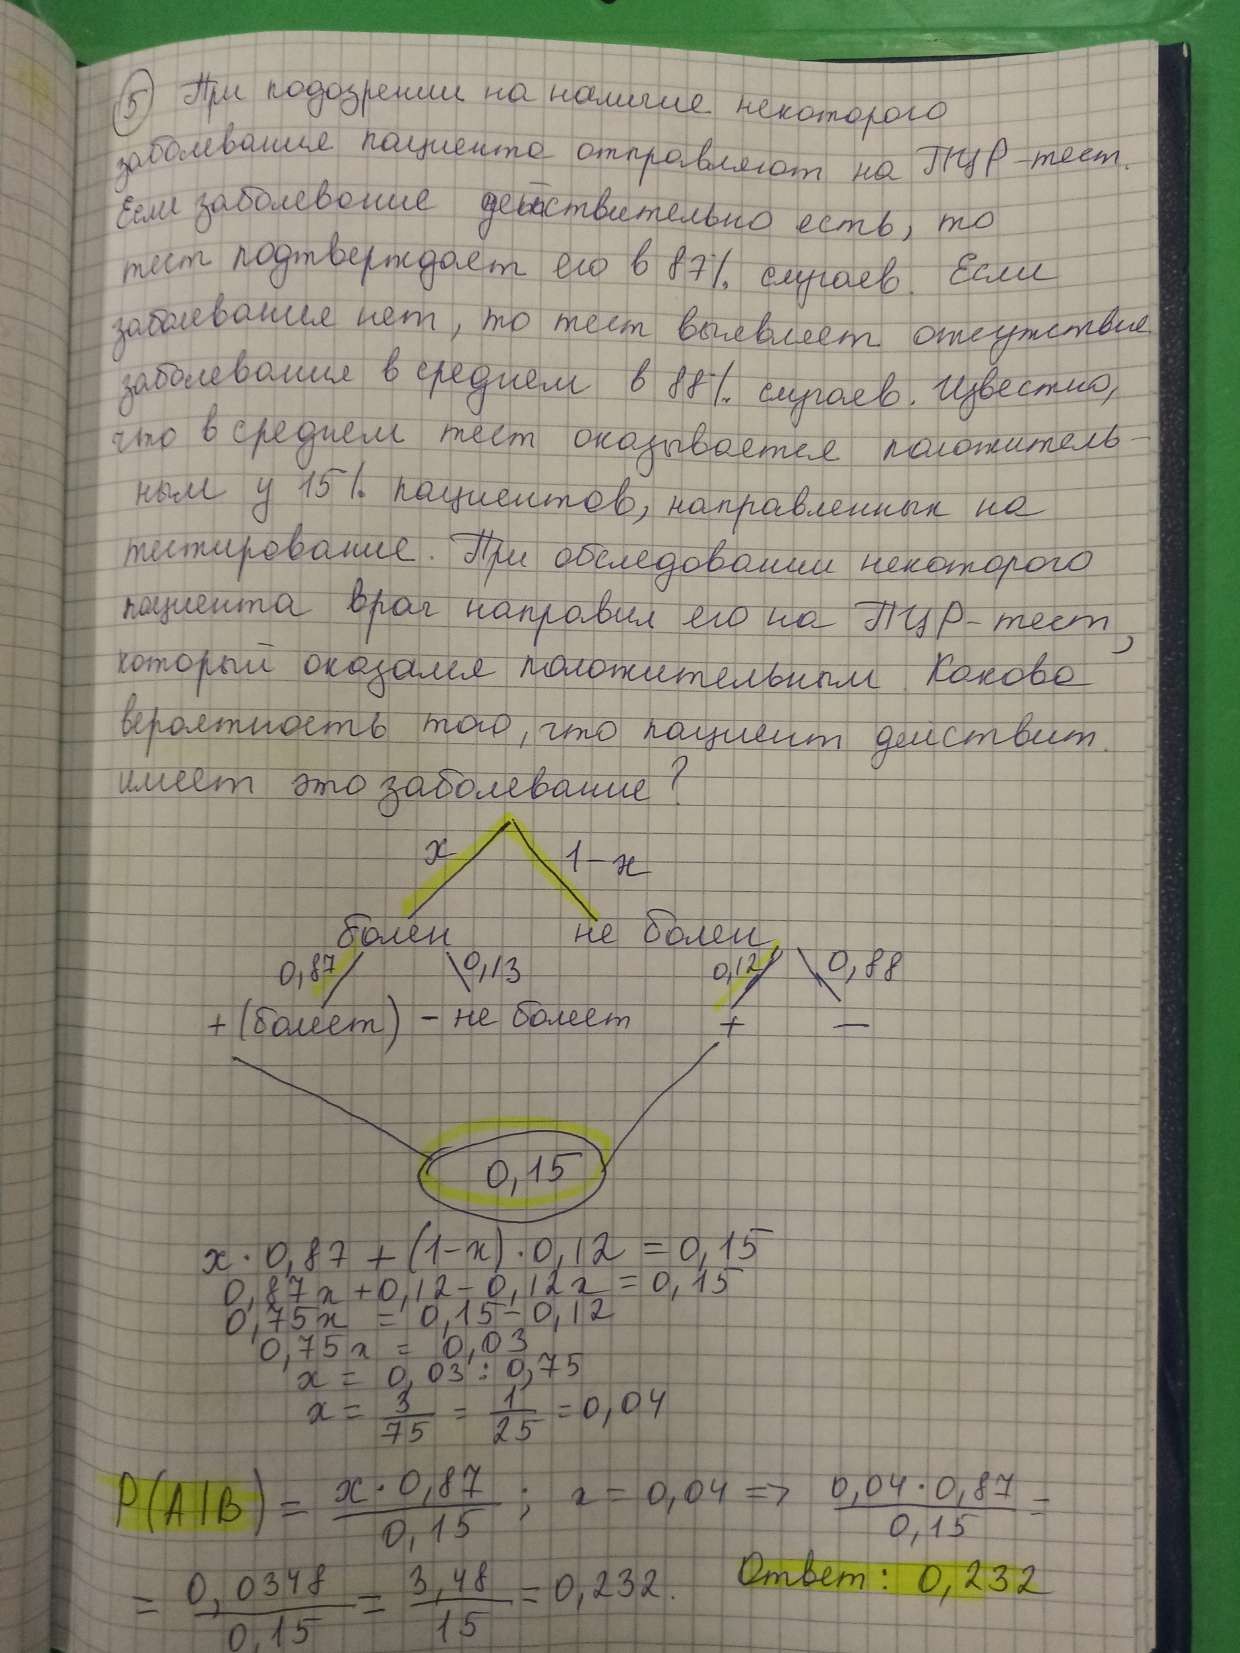 5 При подозрении на наличие некоторого
заболевания пациента отправляют на ПЦР-тест.
Если заболевание действительно есть, то
тест подтверждает его в 87% случаев. Если
заболевания нет, то тест выявляет отсутствие
заболевания в среднем в 88% случаев. Известно,
что в среднем тест оказывается положитель-
ным у 15% пациентов, направленных на
тестирование. При обследовании некоторого
пациента врач направил его на ПЦР-тест,
который оказался положительным Какова
вероятность того, что пациент действит.
имеет это заболевание?
x 1-x
болен не болен
0,87 0,13 0,12 0,88
+ (болеет) - не болеет + -
0,15
x · 0,87 + (1-x) · 0,12 = 0,15
0,87x + 0,12 - 0,12x = 0,15
0,75x = 0,15 - 0,12
0,75x = 0,03
x = 0,03 : 0,75
x = 3/75 = 1/25 = 0,04
P(A|B) = x · 0,87 / 0,15 ; x = 0,04 => 0,04 · 0,87 / 0,15 =
= 0,0348 / 0,15 = 3,48 / 15 = 0,232. Ответ: 0,232